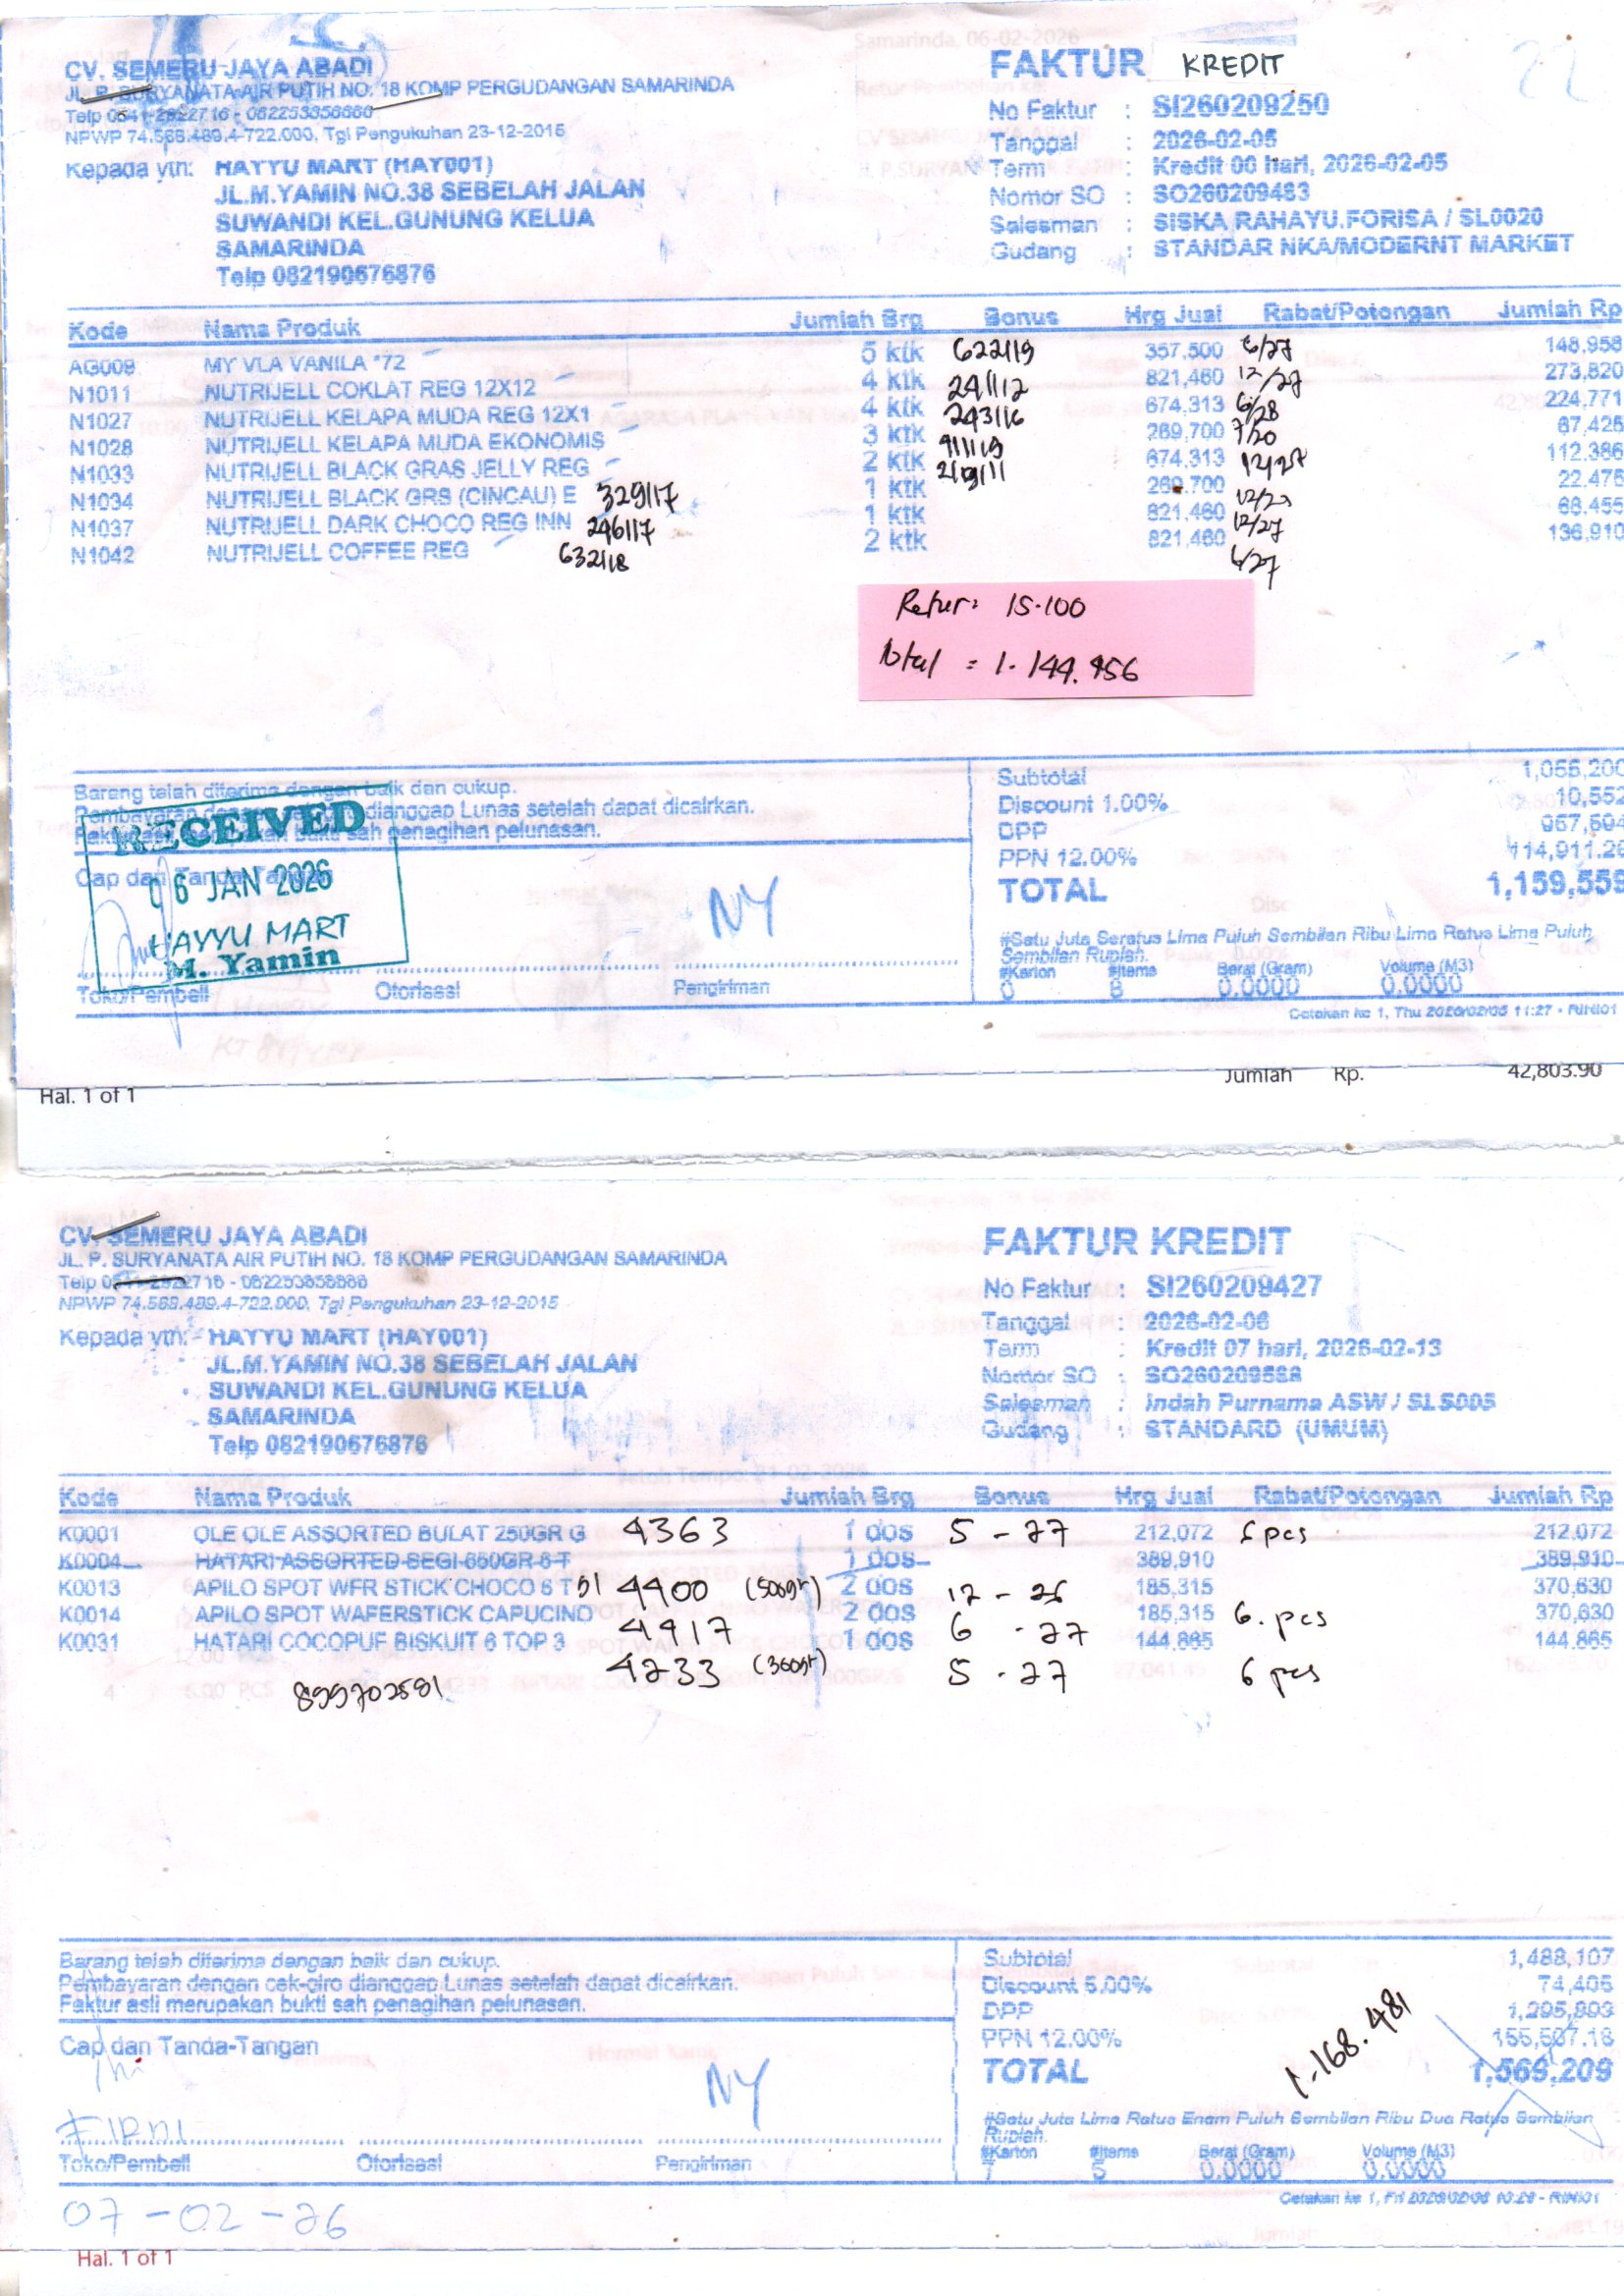 CV. SEMERU JAYA ABADI
JL. P. SURYANATA AIR PUTIH NO. 18 KOMP PERGUDANGAN SAMARINDA
Telp 0541-2822716 - 082253858686
NPWP 74.568.489.4-722.000, Tgl Pengukuhan 23-12-2015
Kepada yth: HAYYU MART (HAY001)
JL.M.YAMIN NO.38 SEBELAH JALAN
SUWANDI KEL.GUNUNG KELUA
SAMARINDA
Telp 082190676876
FAKTUR KREDIT
22
No Faktur : SI260209250
Tanggal : 2026-02-05
Term : Kredit 00 hari, 2026-02-05
Nomor SO : SO260209483
Salesman : SISKA RAHAYU.FORISA / SL0020
Gudang : STANDAR NKA/MODERNT MARKET
Kode Nama Produk Jumlah Brg Bonus Hrg Jual Rabat/Potongan Jumlah Rp
AG009 MY VLA VANILA *72 5 ktk 622119 357,500 6/27 148,958
N1011 NUTRIJELL COKLAT REG 12X12 4 ktk 241112 821,460 12/27 273,820
N1027 NUTRIJELL KELAPA MUDA REG 12X1 4 ktk 243116 674,313 6/28 224,771
N1028 NUTRIJELL KELAPA MUDA EKONOMIS 3 ktk 911119 269,700 67,425
N1033 NUTRIJELL BLACK GRAS JELLY REG 2 ktk 674,313 12/27 112,386
N1034 NUTRIJELL BLACK GRS (CINCAU) E 329117 1 ktk 269,700 22,475
N1037 NUTRIJELL DARK CHOCO REG INN 246117 1 ktk 821,460 12/27 68,455
N1042 NUTRIJELL COFFEE REG 632118 2 ktk 821,460 6/27 136,910
Retur: 15.100
Total = 1.144.456
Barang telah diterima dengan baik dan cukup.
dianggap Lunas setelah dapat dicairkan.
sah penagihan pelunasan.
Cap dan Tanda-Tangan
RECEIVED
06 JAN 2026
HAYYU MART
M. Yamin
NY
Toko/Pembeli Otorisasi Pengiriman
Subtotal 1,055,200
Discount 1.00% 10,552
DPP 957,594
PPN 12.00% 114,911.26
TOTAL 1,159,559
#Satu Juta Seratus Lima Puluh Sembilan Ribu Lima Ratus Lima Puluh
Sembilan Rupiah.
#Karton #Items Berat (Gram) Volume (M3)
0 8 0.0000 0.0000
Cetakan ke 1, Thu 2026/02/05 11:27 - RINI01
Jumlah Rp. 42,803.90
Hal. 1 of 1
CV. SEMERU JAYA ABADI
JL. P. SURYANATA AIR PUTIH NO. 18 KOMP PERGUDANGAN SAMARINDA
Telp 0541-2822716 - 082253858686
NPWP 74.568.489.4-722.000, Tgl Pengukuhan 23-12-2015
Kepada yth: HAYYU MART (HAY001)
JL.M.YAMIN NO.38 SEBELAH JALAN
SUWANDI KEL.GUNUNG KELUA
SAMARINDA
Telp 082190676876
FAKTUR KREDIT
No Faktur : SI260209427
Tanggal : 2026-02-06
Term : Kredit 07 hari, 2026-02-13
Nomor SO : SO260209588
Salesman : Indah Purnama ASW / SLS005
Gudang : STANDARD (UMUM)
Kode Nama Produk Jumlah Brg Bonus Hrg Jual Rabat/Potongan Jumlah Rp
K0001 OLE OLE ASSORTED BULAT 250GR G 4363 1 dos 5 - 27 212,072 6 pcs 212,072
K0004 HATARI ASSORTED SEGI 650GR 6 T 1 dos 389,910 389,910
K0013 APILO SPOT WFR STICK CHOCO 6 T 4400 2 dos 12 - 26 185,315 370,630
K0014 APILO SPOT WAFERSTICK CAPUCINO 4417 2 dos 6 - 27 185,315 6. pcs 370,630
K0031 HATARI COCOPUF BISKUIT 6 TOP 3 1 dos 144,865 144,865
4233 (360gr) 5 - 27 6 pcs
899702581
Barang telah diterima dengan baik dan cukup.
Pembayaran dengan cek-giro dianggap Lunas setelah dapat dicairkan.
Faktur asli merupakan bukti sah penagihan pelunasan.
Cap dan Tanda-Tangan
FIRDI
NY
Toko/Pembeli Otorisasi Pengiriman
Subtotal 1,488,107
Discount 5.00% 74,405
DPP 1,295,893
PPN 12.00% 155,507.18
TOTAL 1.168.481 1,569,209
#Satu Juta Lima Ratus Enam Puluh Sembilan Ribu Dua Ratus Sembilan
Rupiah.
#Karton #Items Berat (Gram) Volume (M3)
7 5 0.0000 0.0000
07-02-26
Hal. 1 of 1